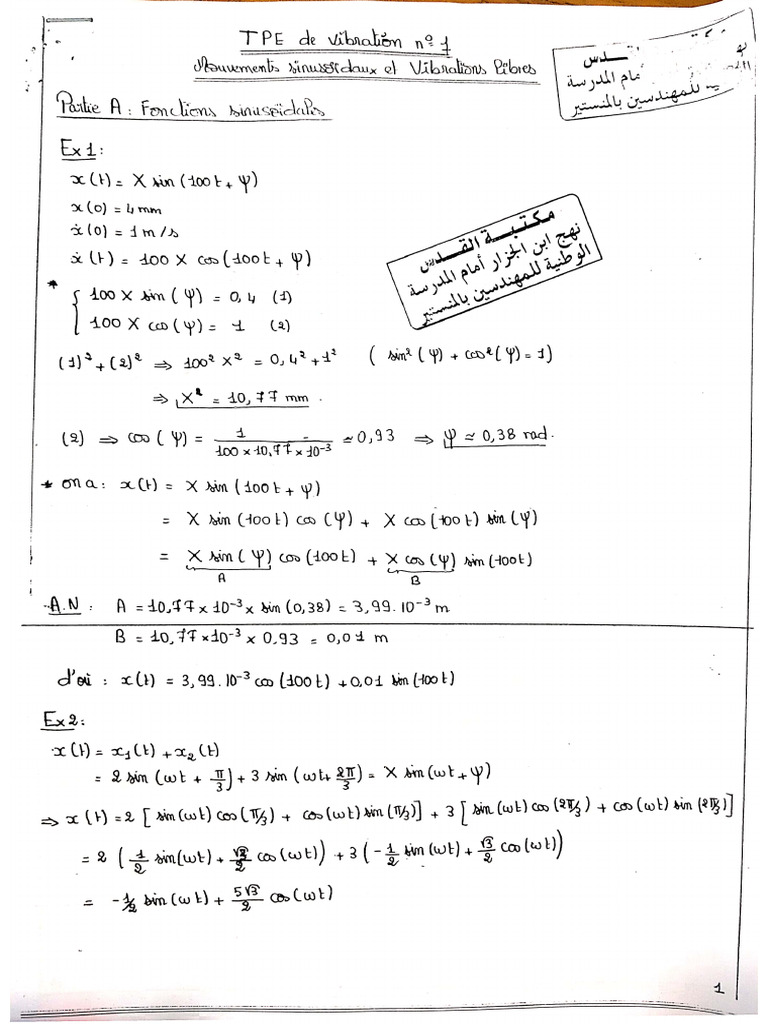 TPE de vibration n°1
Mouvements sinusoïdaux et Vibrations libres
مكتبة القدس
أمام المدرسة
للمهندسين بالمنستير
Partie A : Fonctions sinusoïdales
Ex 1 :
x(t) = X sin(100t + ψ)
x(0) = 4 mm
ẋ(0) = 1 m/s
ẋ(t) = 100 X cos(100t + ψ)
مكتبة القدس
نهج ابن الجزار أمام المدرسة
الوطنية للمهندسين بالمنستير
* { 100 X sin(ψ) = 0,4 (1)
100 X cos(ψ) = 1 (2)
(1)² + (2)² ⇒ 100² X² = 0,4² + 1² ( sin²(ψ) + cos²(ψ) = 1)
⇒ X² = 10,77 mm.
(2) ⇒ cos(ψ) = 1 / (100 × 10,77 × 10⁻³) ≃ 0,93 ⇒ ψ ≃ 0,38 rad.
* on a : x(t) = X sin(100t + ψ)
= X sin(100t) cos(ψ) + X cos(100t) sin(ψ)
= X sin(ψ) cos(100t) + X cos(ψ) sin(100t)
A B
A.N : A = 10,77 × 10⁻³ × sin(0,38) = 3,99.10⁻³ m
B = 10,77 × 10⁻³ × 0,93 = 0,01 m
d'où : x(t) = 3,99.10⁻³ cos(100t) + 0,01 sin(100t)
Ex 2 :
x(t) = x₁(t) + x₂(t)
= 2 sin(ωt + π/3) + 3 sin(ωt + 2π/3) = X sin(ωt + ψ)
⇒ x(t) = 2 [sin(ωt) cos(π/3) + cos(ωt) sin(π/3)] + 3 [sin(ωt) cos(2π/3) + cos(ωt) sin(2π/3)]
= 2 (1/2 sin(ωt) + √3/2 cos(ωt)) + 3 (-1/2 sin(ωt) + √3/2 cos(ωt))
= -1/2 sin(ωt) + 5√3/2 cos(ωt)
1